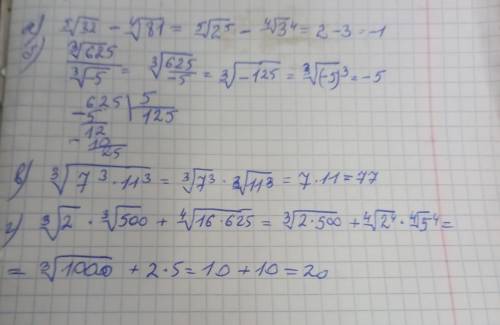 а) ⁵√32 - ⁴√81 = ⁵√2⁵ - ⁴√3⁴ = 2 - 3 = -1
б) ³√625 / ³√-5 = ³√(625/-5) = ³√-125 = ³√(-5)³ = -5
625 | 5
- 5 125
12
- 10
25
в) ³√7³·11³ = ³√7³ · ³√11³ = 7·11 = 77
г) ³√2 · ³√500 + ⁴√16·625 = ³√2·500 + ⁴√2⁴ · ⁴√5⁴ =
= ³√1000 + 2·5 = 10 + 10 = 20